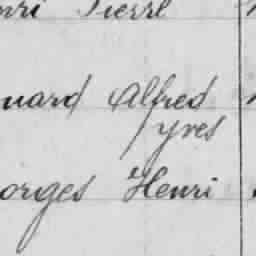 nri Pierre
uard Alfred
Yves
orges Henri